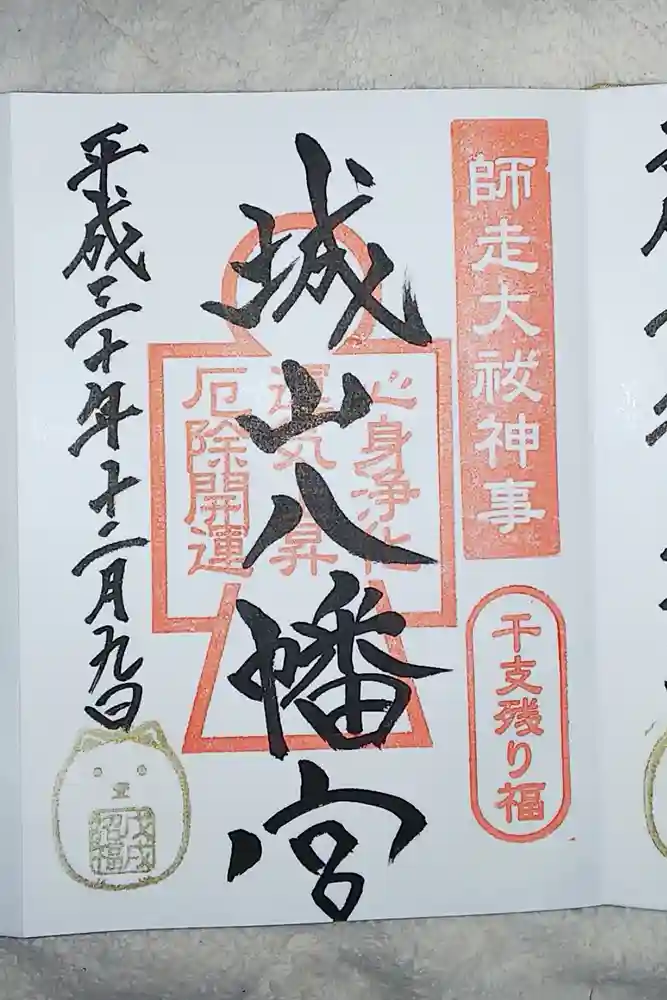 師走大祓神事
干支残り福
城山八幡宮
心身浄化
運気上昇
厄除開運
平成三十年十二月九日
戊戌
招福